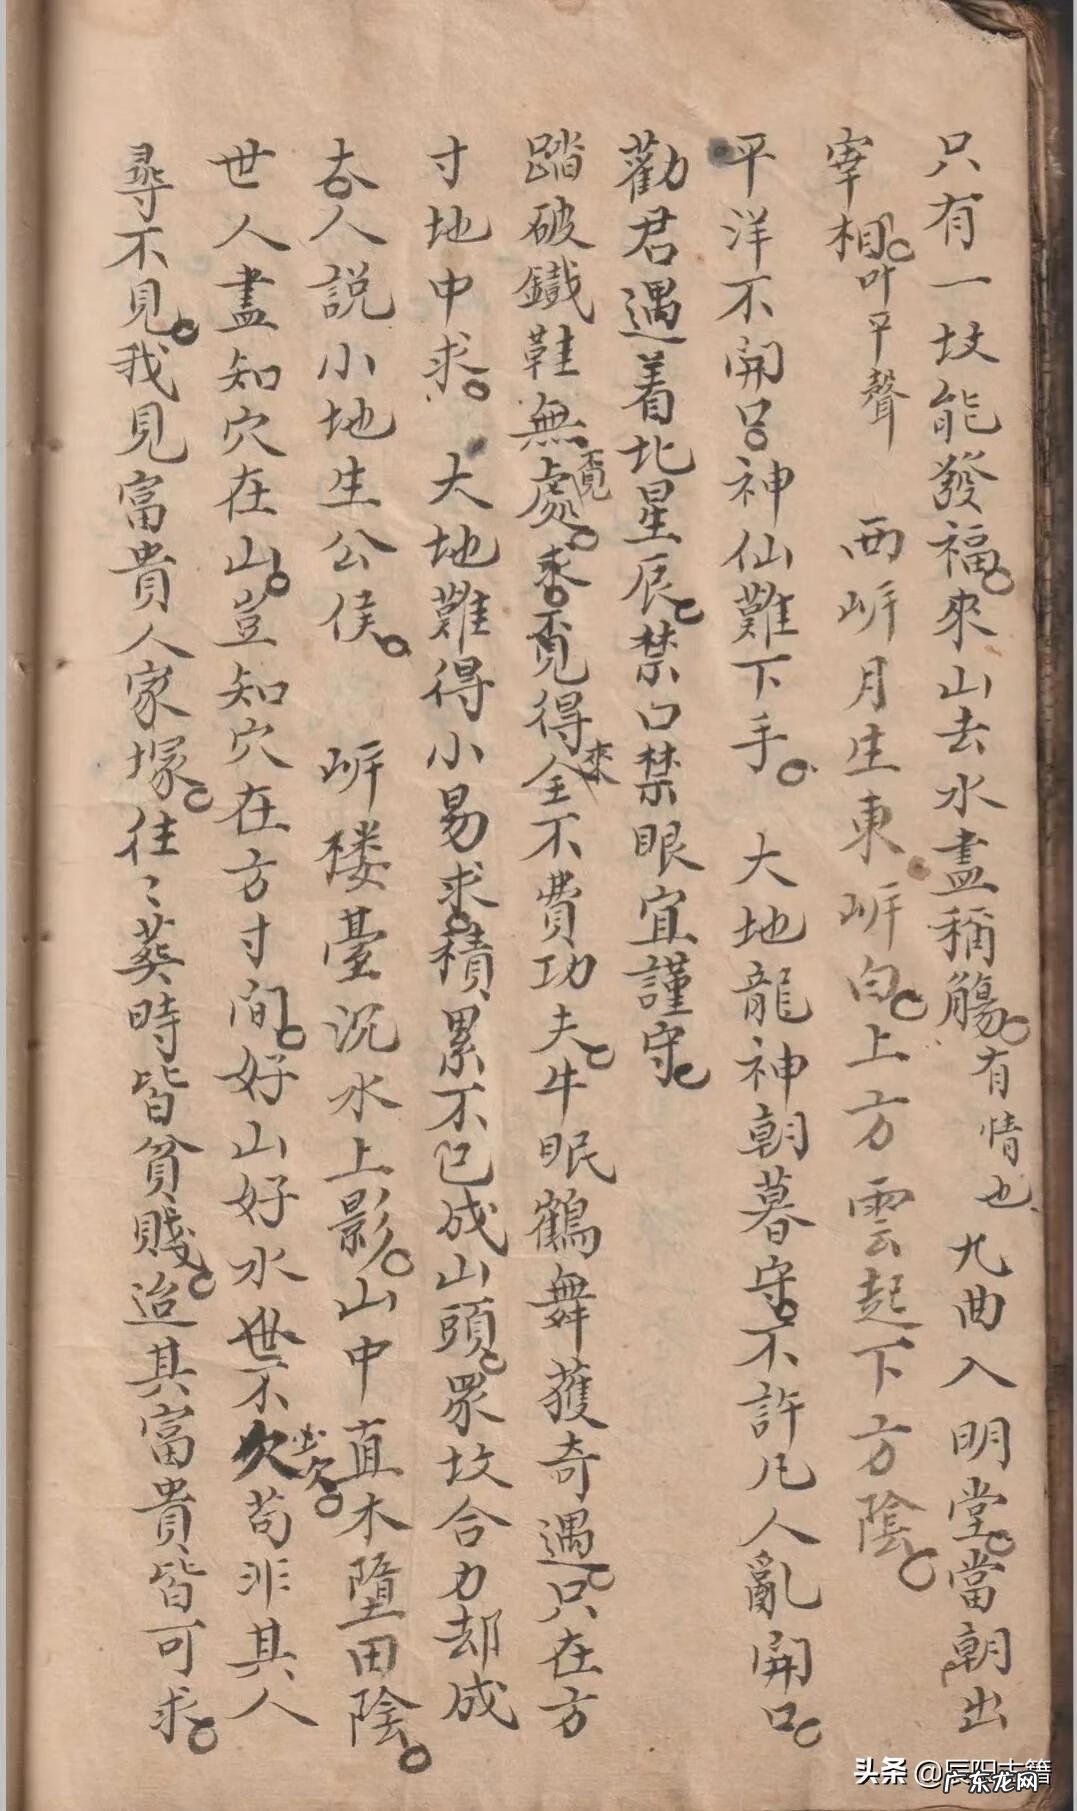 只有一坟能發福來山去水盡稱觴有情也 九曲入明堂當朝出
宰相叶平聲 西㟁月生東㟁白上方雲起下方陰
平洋不開口神仙難下手 大地龍神朝暮守不許凡人亂開口
勸君遇着北星辰禁口禁眼宜謹守
踏破鐵鞋無處覔覔得來全不費功夫牛眠鶴舞獲奇遇只在方
寸地中求 大地難得小易求積累不已成山頭眾坟合力却成
大人説小地生公侯 㟁楼臺沉水上影山中直木墮田陰
世人盡知穴在山豈知穴在方寸間好山好水世不欠苟非其人
尋不見我見富貴人家塚往〻葬時皆貧賤迨其富貴皆可求
头条 @辰阳古籍
广东龙网